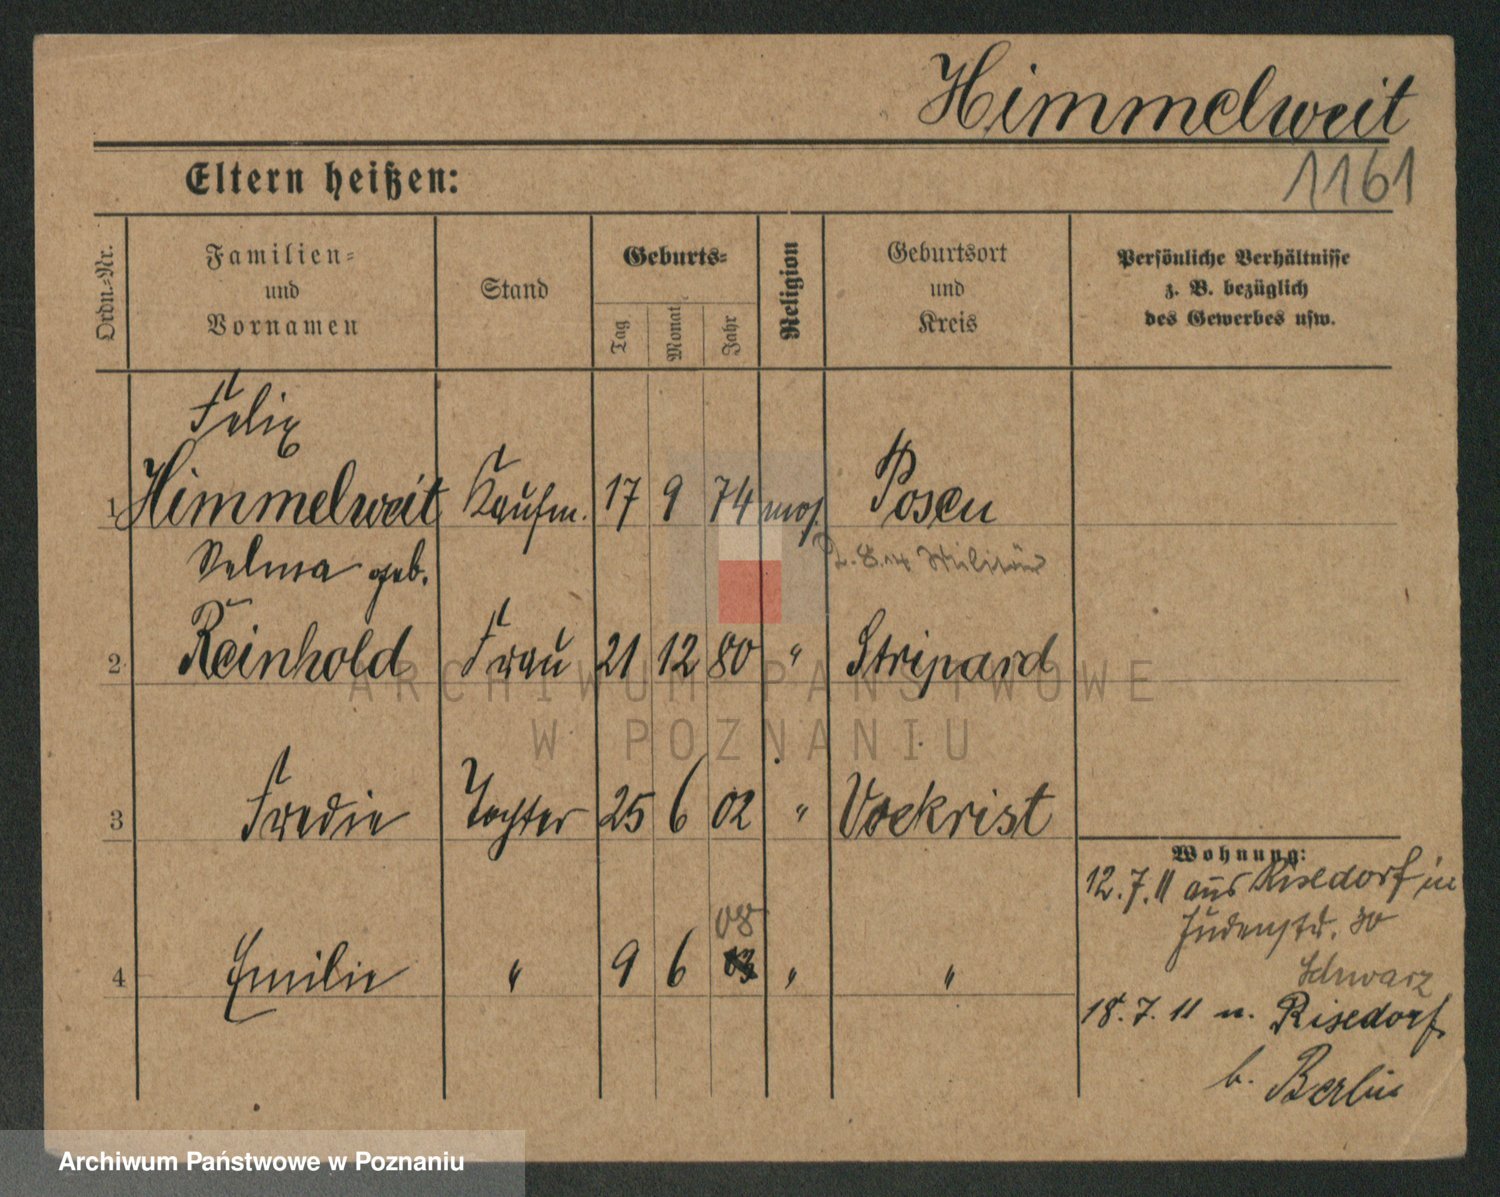 Himmelweit
1161
Eltern heißen:
Ordn.-Nr.
Familien-
und
Vornamen
Stand
Geburts-
Tag
Monat
Jahr
Religion
Geburtsort
und
Kreis
Persönliche Verhältnisse
z. B. bezüglich
des Gewerbes usw.
Felix
1 Himmelweit Kaufm. 17 9 74 mos. Posen
Selma geb. Militär
2 Reinhold Frau 21 12 80 " Stripard
3 Fredie Tochter 25 6 02 " Vockrist
Wohnung:
12.7.11 aus Risedorf in
Judenstr. 30
08
4 Emilie " 9 6 03 " "
Schwarz
18.7.11 n. Risedorf
b. Berlin
ARCHIWUM PAŃSTWOWE
W POZNANIU
Archiwum Państwowe w Poznaniu